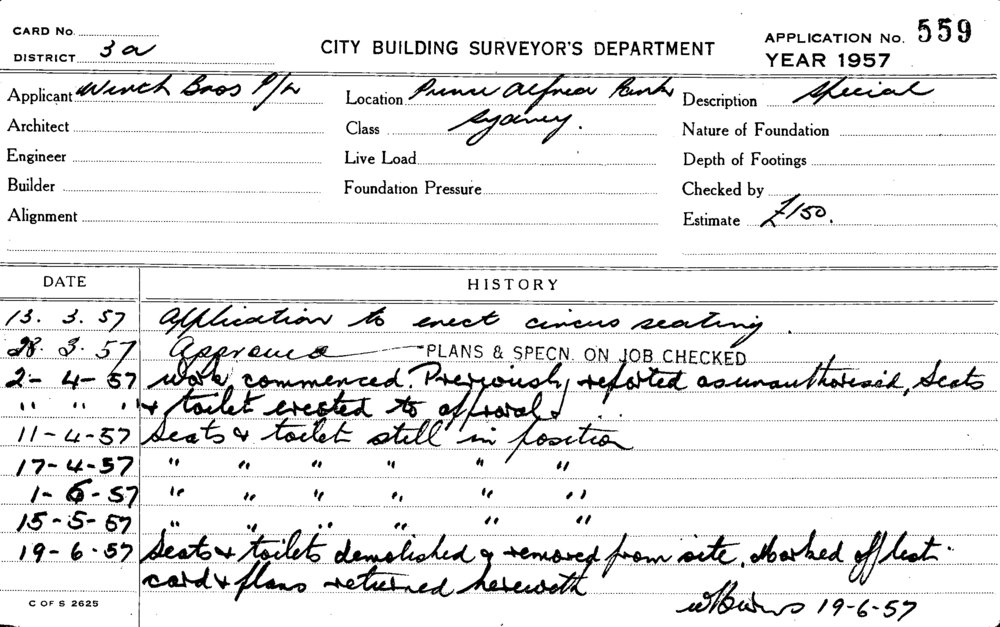 CARD No.
DISTRICT 3a
CITY BUILDING SURVEYOR'S DEPARTMENT
APPLICATION No. 559
YEAR 1957
Applicant Winch Bros P/L
Location Prince Alfred Park
Sydney.
Description Special
Architect
Class
Nature of Foundation
Engineer
Live Load
Depth of Footings
Builder
Foundation Pressure
Checked by
Alignment
Estimate £150.
DATE HISTORY
13. 3. 57 Application to erect circus seating.
28. 3. 57 Approved PLANS & SPECN. ON JOB CHECKED
2 - 4 - 57 Work commenced. Previously reported as unauthorised, Seats
" " " & toilet erected to approval
11 - 4 - 57 Seats & toilet still in position
17 - 4 - 57 " " " " " "
1 - 5 - 57 " " " " " "
15 - 5 - 57 " " " " " "
19 - 6 - 57 Seats & toilets demolished & removed from site. Marked off list
card & plans returned herewith
19-6-57
C OF S 2625